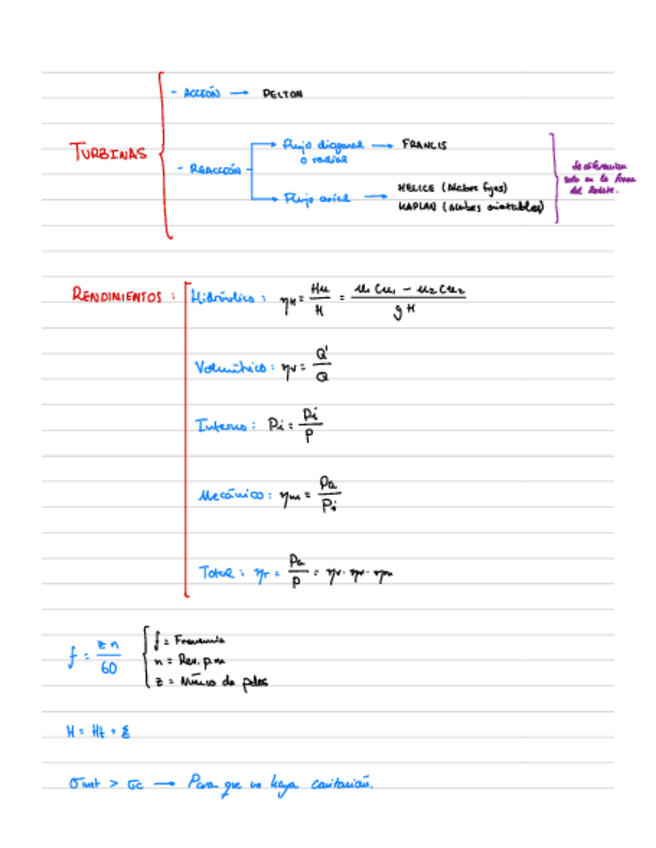 TURBINAS
- ACCIÓN → PELTON
- REACCIÓN
Flujo diagonal o radial → FRANCIS
Flujo axial → HELICE (Alabes fijos)
KAPLAN (Alabes orientables)
Se diferencian
solo en la forma
del Rodete.
RENDIMIENTOS :
Hidráulico : ηH = Hu / H = (u1 Cu1 - u2 Cu2) / gH
Volumétrico : ηv = Q' / Q
Interno : Pi = Pi / P
Mecánico : ηm = Pa / Pi
Total : ηT = Pa / P =
f = z n / 60
f = Frecuencia
n = Rev. p.m
z = Número de polos
H = Ht =
σinst > σc → Para que no haya cavitación.